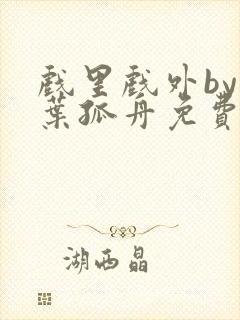 戲里戲外by
葉孤舟免費
湖西晶